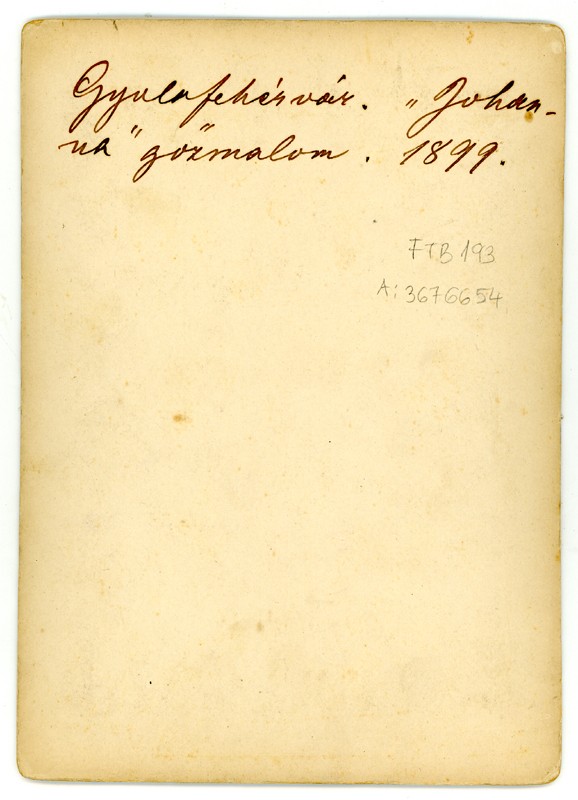 Gyulafehérvár. "Johan-
na" gőzmalom. 1899.
FTB 193
A: 3676654